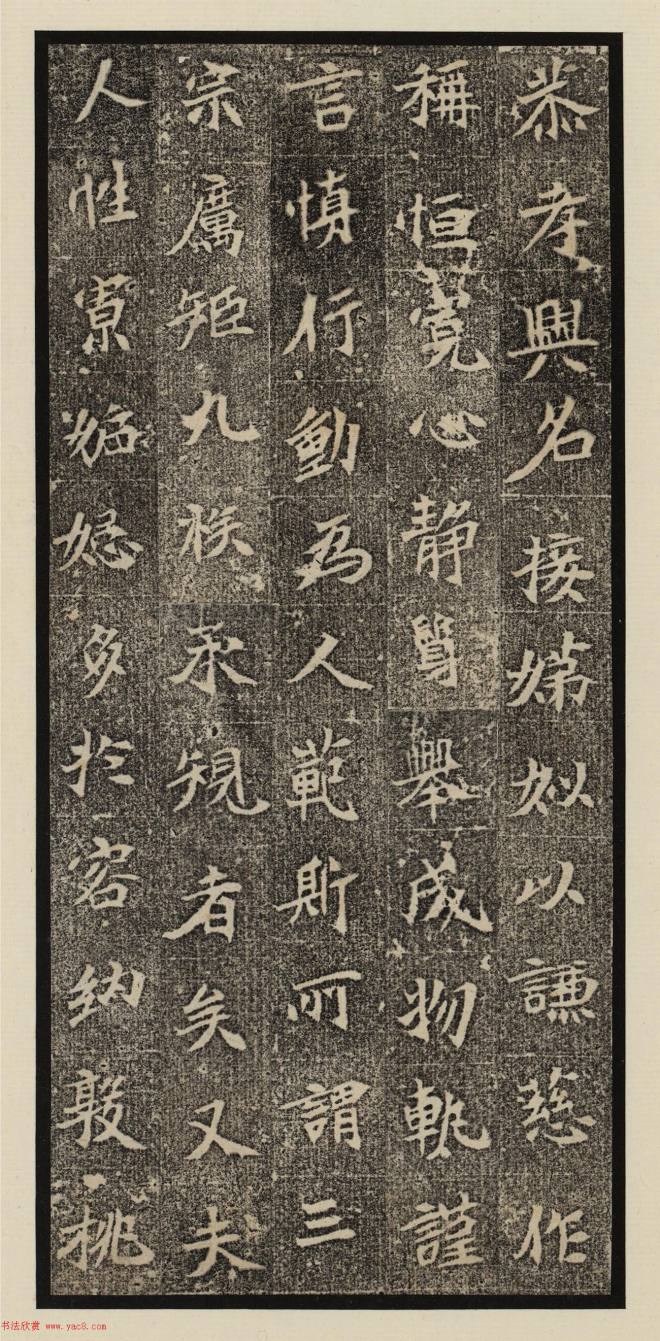 恭孝興名接娣姒以謙慈作
稱恒寬心靜質舉成物軌謹
言慎行動為人範斯所謂三
宗厲矩九族承規者矣又夫
人性寡妬忌多於容納敦桃
书法欣赏 www.yac8.com